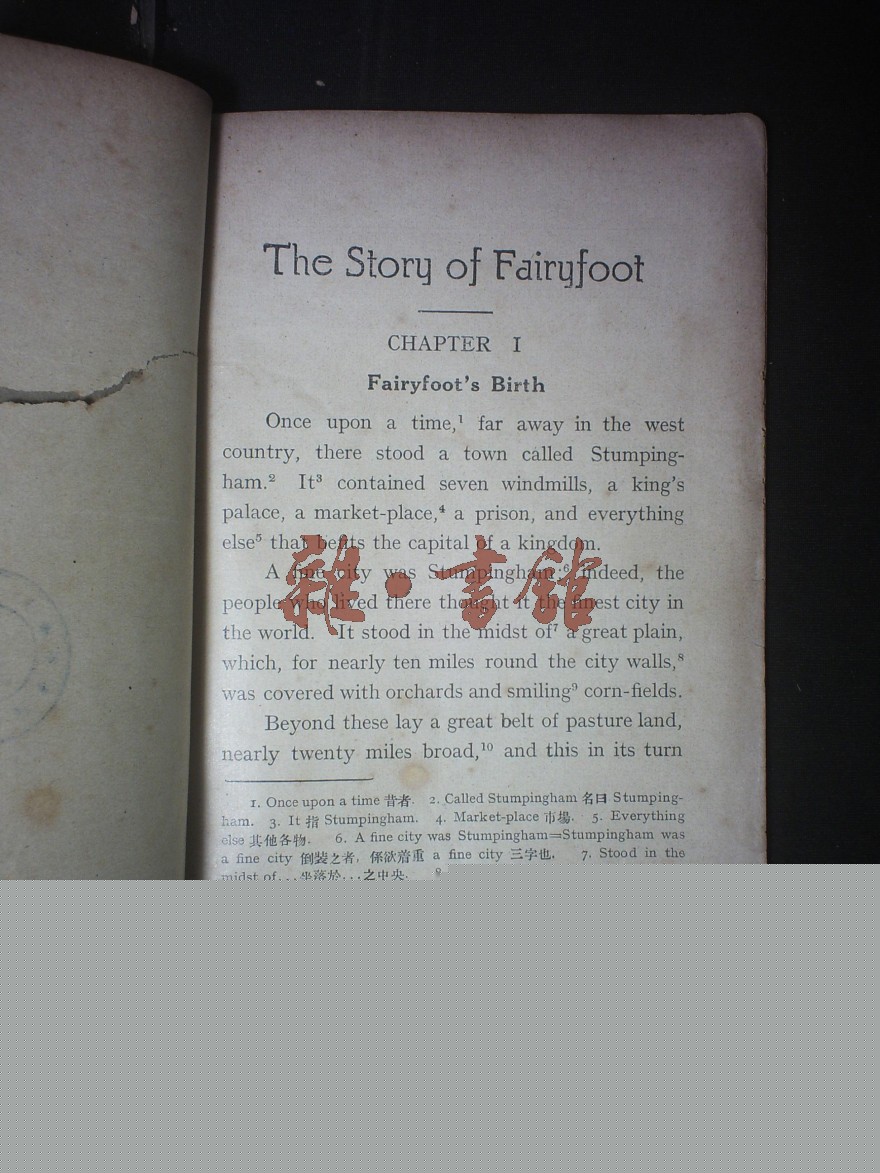 The Story of Fairyfoot
CHAPTER I
Fairyfoot's Birth
Once upon a time,¹ far away in the west
country, there stood a town called Stumping-
ham.² It³ contained seven windmills, a king's
palace, a market-place,⁴ a prison, and everything
else⁵ that befits the capital of a kingdom.
A fine city was Stumpingham;⁶ indeed, the
people who lived there thought it the finest city in
the world. It stood in the midst of⁷ a great plain,
which, for nearly ten miles round the city walls,⁸
was covered with orchards and smiling⁹ corn-fields.
Beyond these lay a great belt of pasture land,
nearly twenty miles broad,¹⁰ and this in its turn
1. Once upon a time 昔者. 2. Called Stumpingham 名曰 Stumping-
ham. 3. It 指 Stumpingham. 4. Market-place 市場. 5. Everything
else 其他各物. 6. A fine city was Stumpingham=Stumpingham was
a fine city 倒裝之者, 係欲着重 a fine city 三字也. 7. Stood in the
midst of...坐落於...之中央. 8
雜·書館